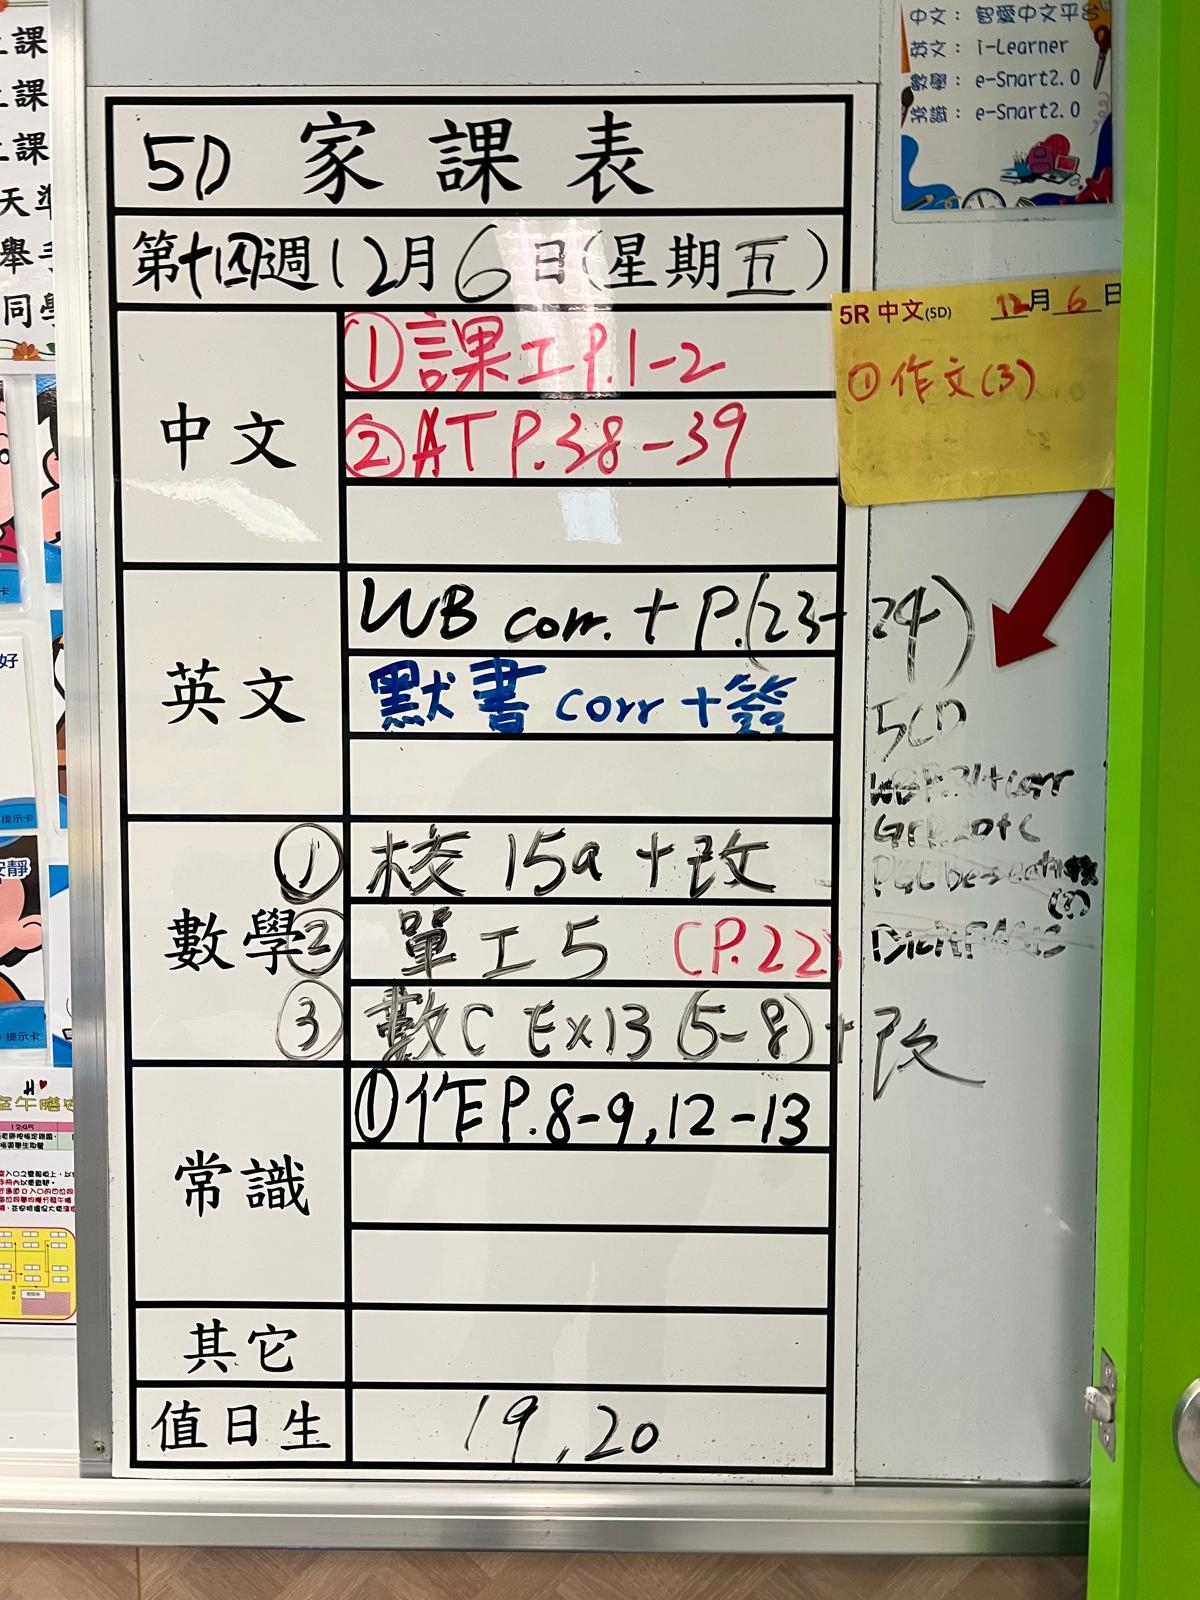 5D 家課表
第十四週12月6日(星期五)
中文
①課工P.1-2
②AT P.38-39
英文
WB corr. + P.(23-24)
默書 corr + 簽
數學
① 校 15a + 改
② 單工5 (P.22)
③ 數C Ex13 (5-8) + 改
常識
①作P.8-9,12-13
其它
值日生
19,20
中文： 智愛中文平台
英文： i-Learner
數學： e-Smart2.0
常識： e-Smart2.0
5R 中文(5D) 12月6日
①作文(3)
5CD
上課
上課
上課
天準
舉手
同學
好
提示卡
安靜
提示卡
12:45